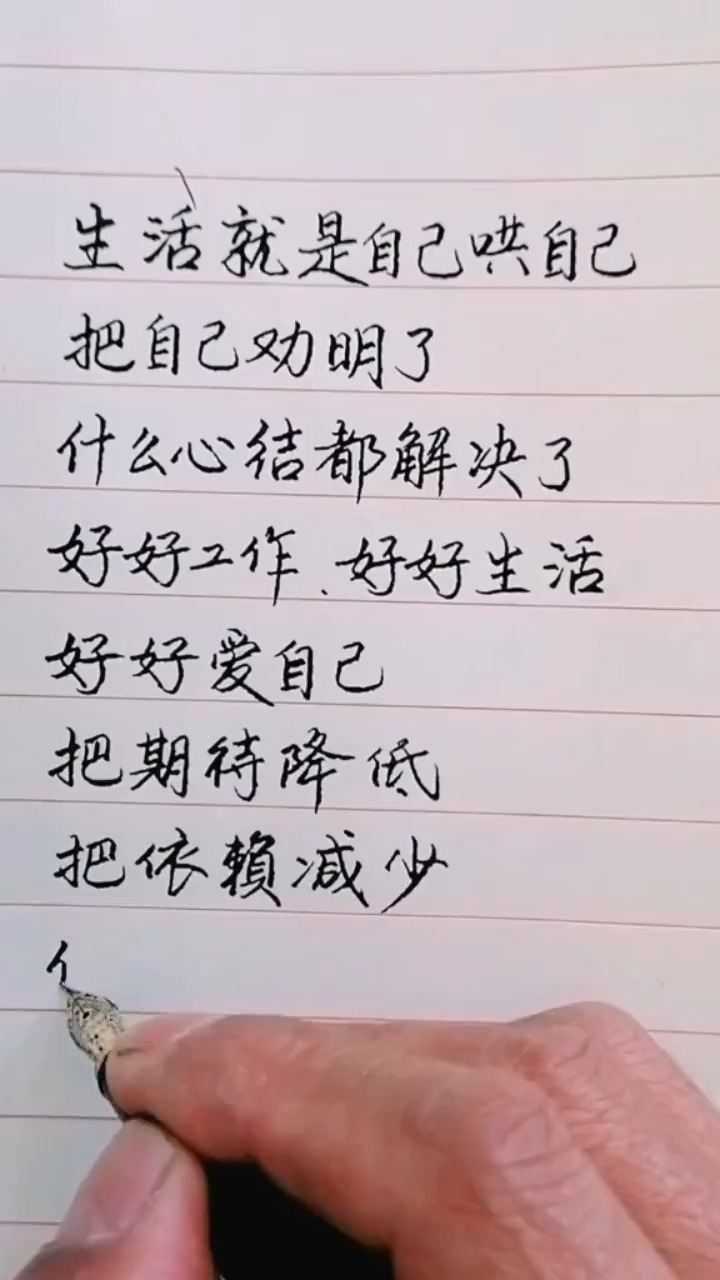 生活就是自己哄自己
把自己劝明了
什么心结都解决了
好好工作、好好生活
好好爱自己
把期待降低
把依賴减少
亻